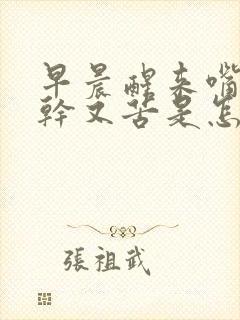 早晨醒来嘴
幹又苦是怎
張祖武